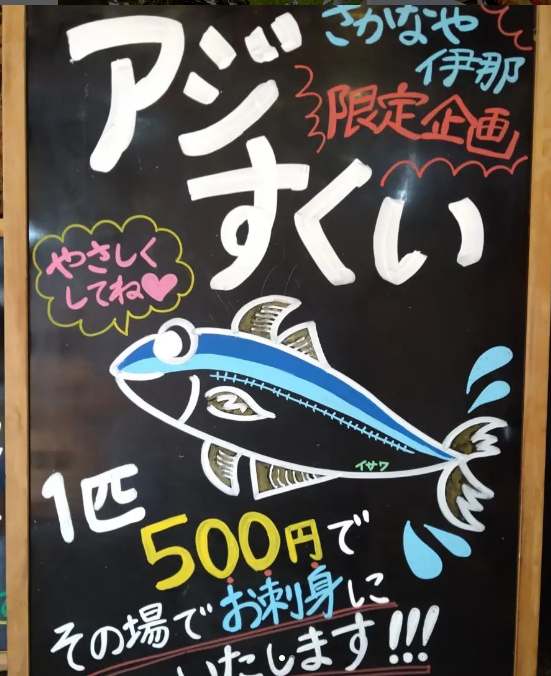 アジ
すくい
さかなや
伊那
限定企画
やさしく
してね♥
イサワ
1匹
500円で
その場でお刺身に
いたします!!!